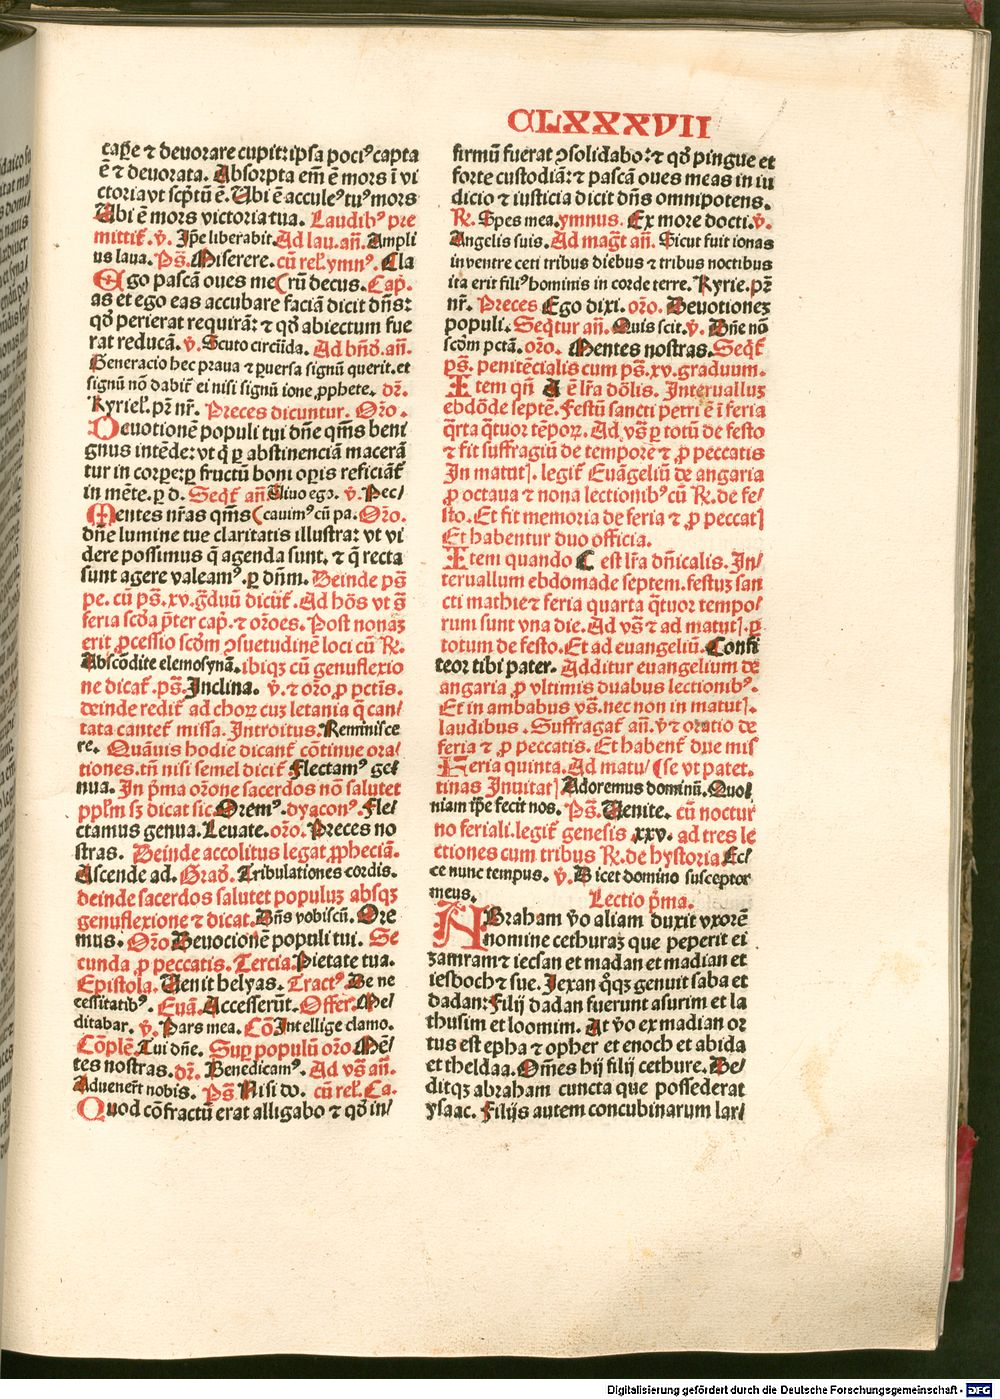 CLXXXVII
capere ⁊ devorare cupit: ipsa pociꝰ capta
ē ⁊ devorata. Absorpta em̄ ē mors ī vi
ctoria vt scptū ē. Ubi ē acculeꝰ tuꝰ mors
Ubi ē mors victoria tua. Laudibꝰ pre
mittit᷑. v̄. Ip̄e liberabit. Ad lau. an̄. Ampli
us laua. Ps̄. Miserere. cū rel. ymnꝰ. Cla
Ego pascā oues me (rū decus. Cap̄.
as et ego eas accubare faciā dicit dn̄s:
qd̄ perierat requirā: ⁊ qd̄ abiectum fue
rat reducā. v̄. Scuto circūda. Ad bn̄d̄. an̄.
Generacio hec praua ⁊ ꝑuersa signū querit. et
signū nō dabit᷑ ei nisi signū ione ꝓphete. dr̄.
Kyriel. pr̄ nr̄. Preces dicuntur. Oro.
Deuotionē populi tui dn̄e qm̄s beni
gnus intēde: vt q̄ ꝑ abstinenciā macerā
tur in corꝑe: ꝑ fructū boni opis reficiāt᷑
in mēte. ꝑ d. Seqt᷑ an̄ Viuo ego. v̄. Pec/
Mentes nr̄as qm̄s (cauimꝰ cū pa. Oro.
dn̄e lumine tue claritatis illustra: vt vi
dere possimus q̄ agenda sunt. ⁊ q̄ recta
sunt agere valeamꝰ. ꝑ dn̄m. Deinde ps̄
pe. cū ps̄. xv. gͣduū dicūt᷑. Ad hōs vt s̄
feria scd̄a p̄ter cap̄. ⁊ oroēs. Post nonaȝ
erit ꝓcessio scd̄m ꝯsuetudinē loci cū ℟.
Abscōdite elemosynā. ibiqȝ cū genuflexio
ne dicat᷑. ps̄. Inclina. v̄. ⁊ oro ꝓ pctīs.
deinde redit᷑ ad choꝝ cuȝ letania q̄ can/
tata cantet᷑ missa. Introitus. Reminisce
re. Quāuis hodie dicant᷑ cōtinue ora/
tiones. tn̄ nisi semel dicit᷑ Flectamꝰ ge/
nua. In p̄ma oroñe sacerdos nō salutet
ppl̄m sȝ dicat sic. Oremꝰ. dyaconꝰ. Fle/
ctamus genua. Leuate. oro. Preces no
stras. Deinde accolitus legat ꝓpheciā.
Ascende ad. Grad̄. Tribulationes cordis.
deinde sacerdos salutet populuȝ absqȝ
genuflexione ⁊ dicat. Dn̄s vobiscū. Ore
mus. Oro Deuocionē populi tui. Se
cunda ꝓ peccatis. Tercia. Pietate tua.
Epistola. Venit helyas. Tractꝰ. De ne
cessitatibꝰ. Euā. Accesserūt. Offer. Me/
ditabar. v̄. Pars mea. Cō Intellige clamo.
Cōplē. Tui dn̄e. Suꝑ populū oro. Mē/
tes nostras. dr̄. Benedicamꝰ. Ad vs̄ an̄.
Aduenerūt nobis. Ps̄ Nisi do. cū rel. Ca.
Quod cōfractū erat alligabo ⁊ qd̄ in/
firmū fuerat ꝯsolidabo: ⁊ qd̄ pingue et
forte custodiā: ⁊ pascā oues meas in iu
dicio ⁊ iusticia dicit dn̄s omnipotens.
℟. Spes mea. ymnus. Ex more docti. v̄.
Angelis suis. Ad magt̄ an̄. Sicut fuit ionas
in ventre ceti tribus diebus ⁊ tribus noctibus
ita erit filiꝰ hominis in corde terre. Kyrie. pr̄
nr̄. Preces Ego dixi. oro. Deuotioneȝ
populi. Seqtur an̄. Quis scit. v̄. Dn̄e nō
scd̄m pctā. oro. Mentes nostras. Seqt᷑
ps̄. penitēcialis cum ps̄. xv. graduum.
Item qn̄ A ē lr̄a dōlis. Interuallus
ebdōde septē. Festū sancti petri ē ī feria
q̄rta q̄tuor tēpoꝝ. Ad vs̄ ꝑ totū de festo
⁊ fit suffragiū de tempore ⁊ ꝓ peccatis
In matut]. legit᷑ Euāgeliū de angaria
ꝓ octaua ⁊ nona lectionibꝰ cū ℟. de fe/
sto. Et fit memoria de feria ⁊ ꝓ peccat]
Et habentur duo officia.
Item quando C est lr̄a dn̄icalis. In/
teruallum ebdomade septem. festuȝ san
cti mathie ⁊ feria quarta q̄tuor tempo/
rum sunt vna die. Ad vs̄ ⁊ ad matut]. ꝑ
totum de festo. Et ad euangeliū. Confi
teor tibi pater. Additur euangelium de
angaria ꝓ vltimis duabus lectionibꝰ.
Et in ambabus vs̄. nec non in matut].
laudibus. Suffragat᷑ an̄. v̄ ⁊ oratio de
feria ⁊ ꝓ peccatis. Et habent᷑ due mis
Feria quinta. Ad matu/ (se vt patet.
tinas Inuitat] Adoremus dominū. Quo/
niam ip̄e fecit nos. Ps̄. Venite. cū noctur
no feriali. legit᷑ genesis xxv. ad tres le
ctiones cum tribus ℟. de hystoria Ec/
ce nunc tempus. v̄. Dicet domino susceptor
meus. Lectio p̄ma.
ABraham v̄o aliam duxit vxorē
nomine cethuraȝ que peperit ei
zamram ⁊ iecsan et madan et madian et
iesboch ⁊ sue. Iexan q̄qȝ genuit saba et
dadan: Filij dadan fuerunt asurim et la
thusim et loomim. At v̄o ex madian or
tus est epha ⁊ opher et enoch et abida
et theldaa. Om̄es hij filij cethure. De/
ditqȝ abraham cuncta que possederat
ysaac. Filijs autem concubinarum lar/
Digitalisierung gefördert durch die Deutsche Forschungsgemeinschaft - DFG